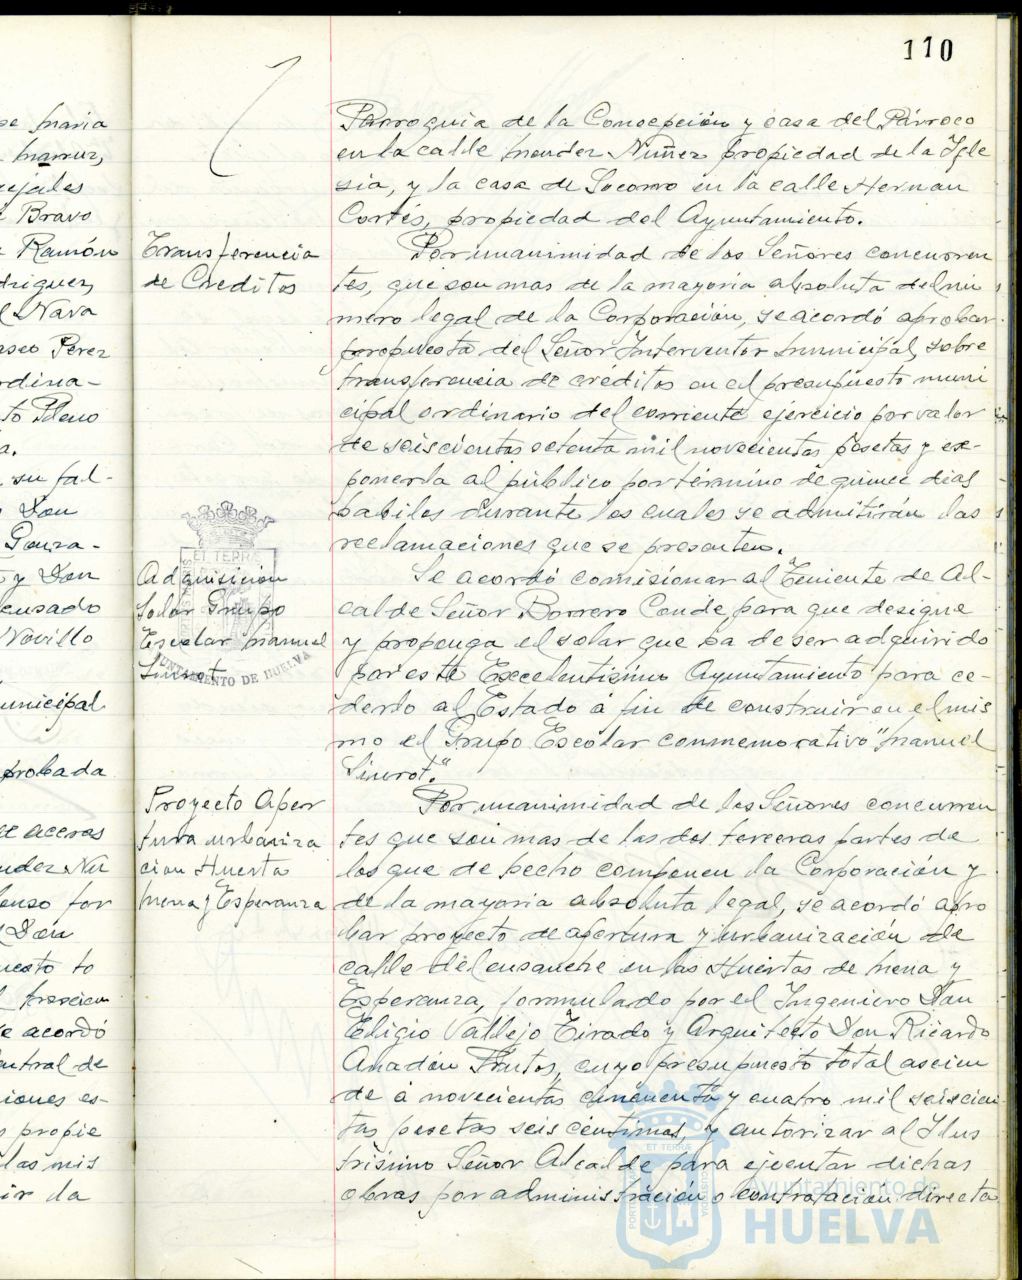 110
se maria
Marruz,
cejales
Bravo
Ramón
driguez
l Nava
asco Perez
rdina-
to Pleno
a.
su fal-
Don
Gonza-
y Don
ensado
Novillo
unicipal
probada
de aceras
endez Nú
onso for
Don
uesto to
l trescien
se acordó
entral de
ciones es-
s propie
las mis
ir la
Parroquia de la Concepción y casa del Párroco
en la calle Mendez Nuñez propiedad de la Igle
sia, y la casa de Socorro en la calle Hernan
Cortés, propiedad del Ayuntamiento.
Transferencia
de Creditos
Por unanimidad de los Señores concurren
tes, que son mas de la mayoria absoluta del nú
mero legal de la Corporación, se acordó aprobar
propuesta del Señor Interventor municipal, sobre
transferencia de créditos en el presupuesto muni
cipal ordinario del corriente ejercicio por valor
de seiscientas setenta mil novecientas pesetas y ex-
ponerla al público por término de quince dias
habiles durante los cuales se admitirán las
reclamaciones que se presenten.
Adquisición
Solar Grupo
Escolar Manuel
Siurot
Se acordó comisionar al Teniente de Al-
calde Señor Borrero Conde para que designe
y proponga el solar que ha de ser adquirido
por este Excelentisimo Ayuntamiento para ce-
derlo al Estado á fin de construir en el mis
mo el Grupo Escolar conmemorativo "Manuel
Siurot."
Proyecto Aper
tura urbaniza
cion Huerta
Mena y Esperanza
Por unanimidad de los Señores concurren
tes que son mas de las dos terceras partes de
los que de hecho componen la Corporación y
de la mayoria absoluta legal, se acordó apro
bar proyecto de apertura y urbanización de
calle del ensanche en las Huertas de Mena y
Esperanza, formulado por el Ingeniero Don
Eligio Vallejo Tirado y Arquitecto Don Ricardo
Anadón Frutos, cuyo presupuesto total ascien
de á novecientas cincuenta y cuatro mil seiscien
tas pesetas seis centimos, y autorizar al Ilus
trisimo Señor Alcalde para ejecutar dichas
obras por administración o contratación directa
ET TERRÆ
AYUNTAMIENTO DE HUELVA
Ayuntamiento de
HUELVA